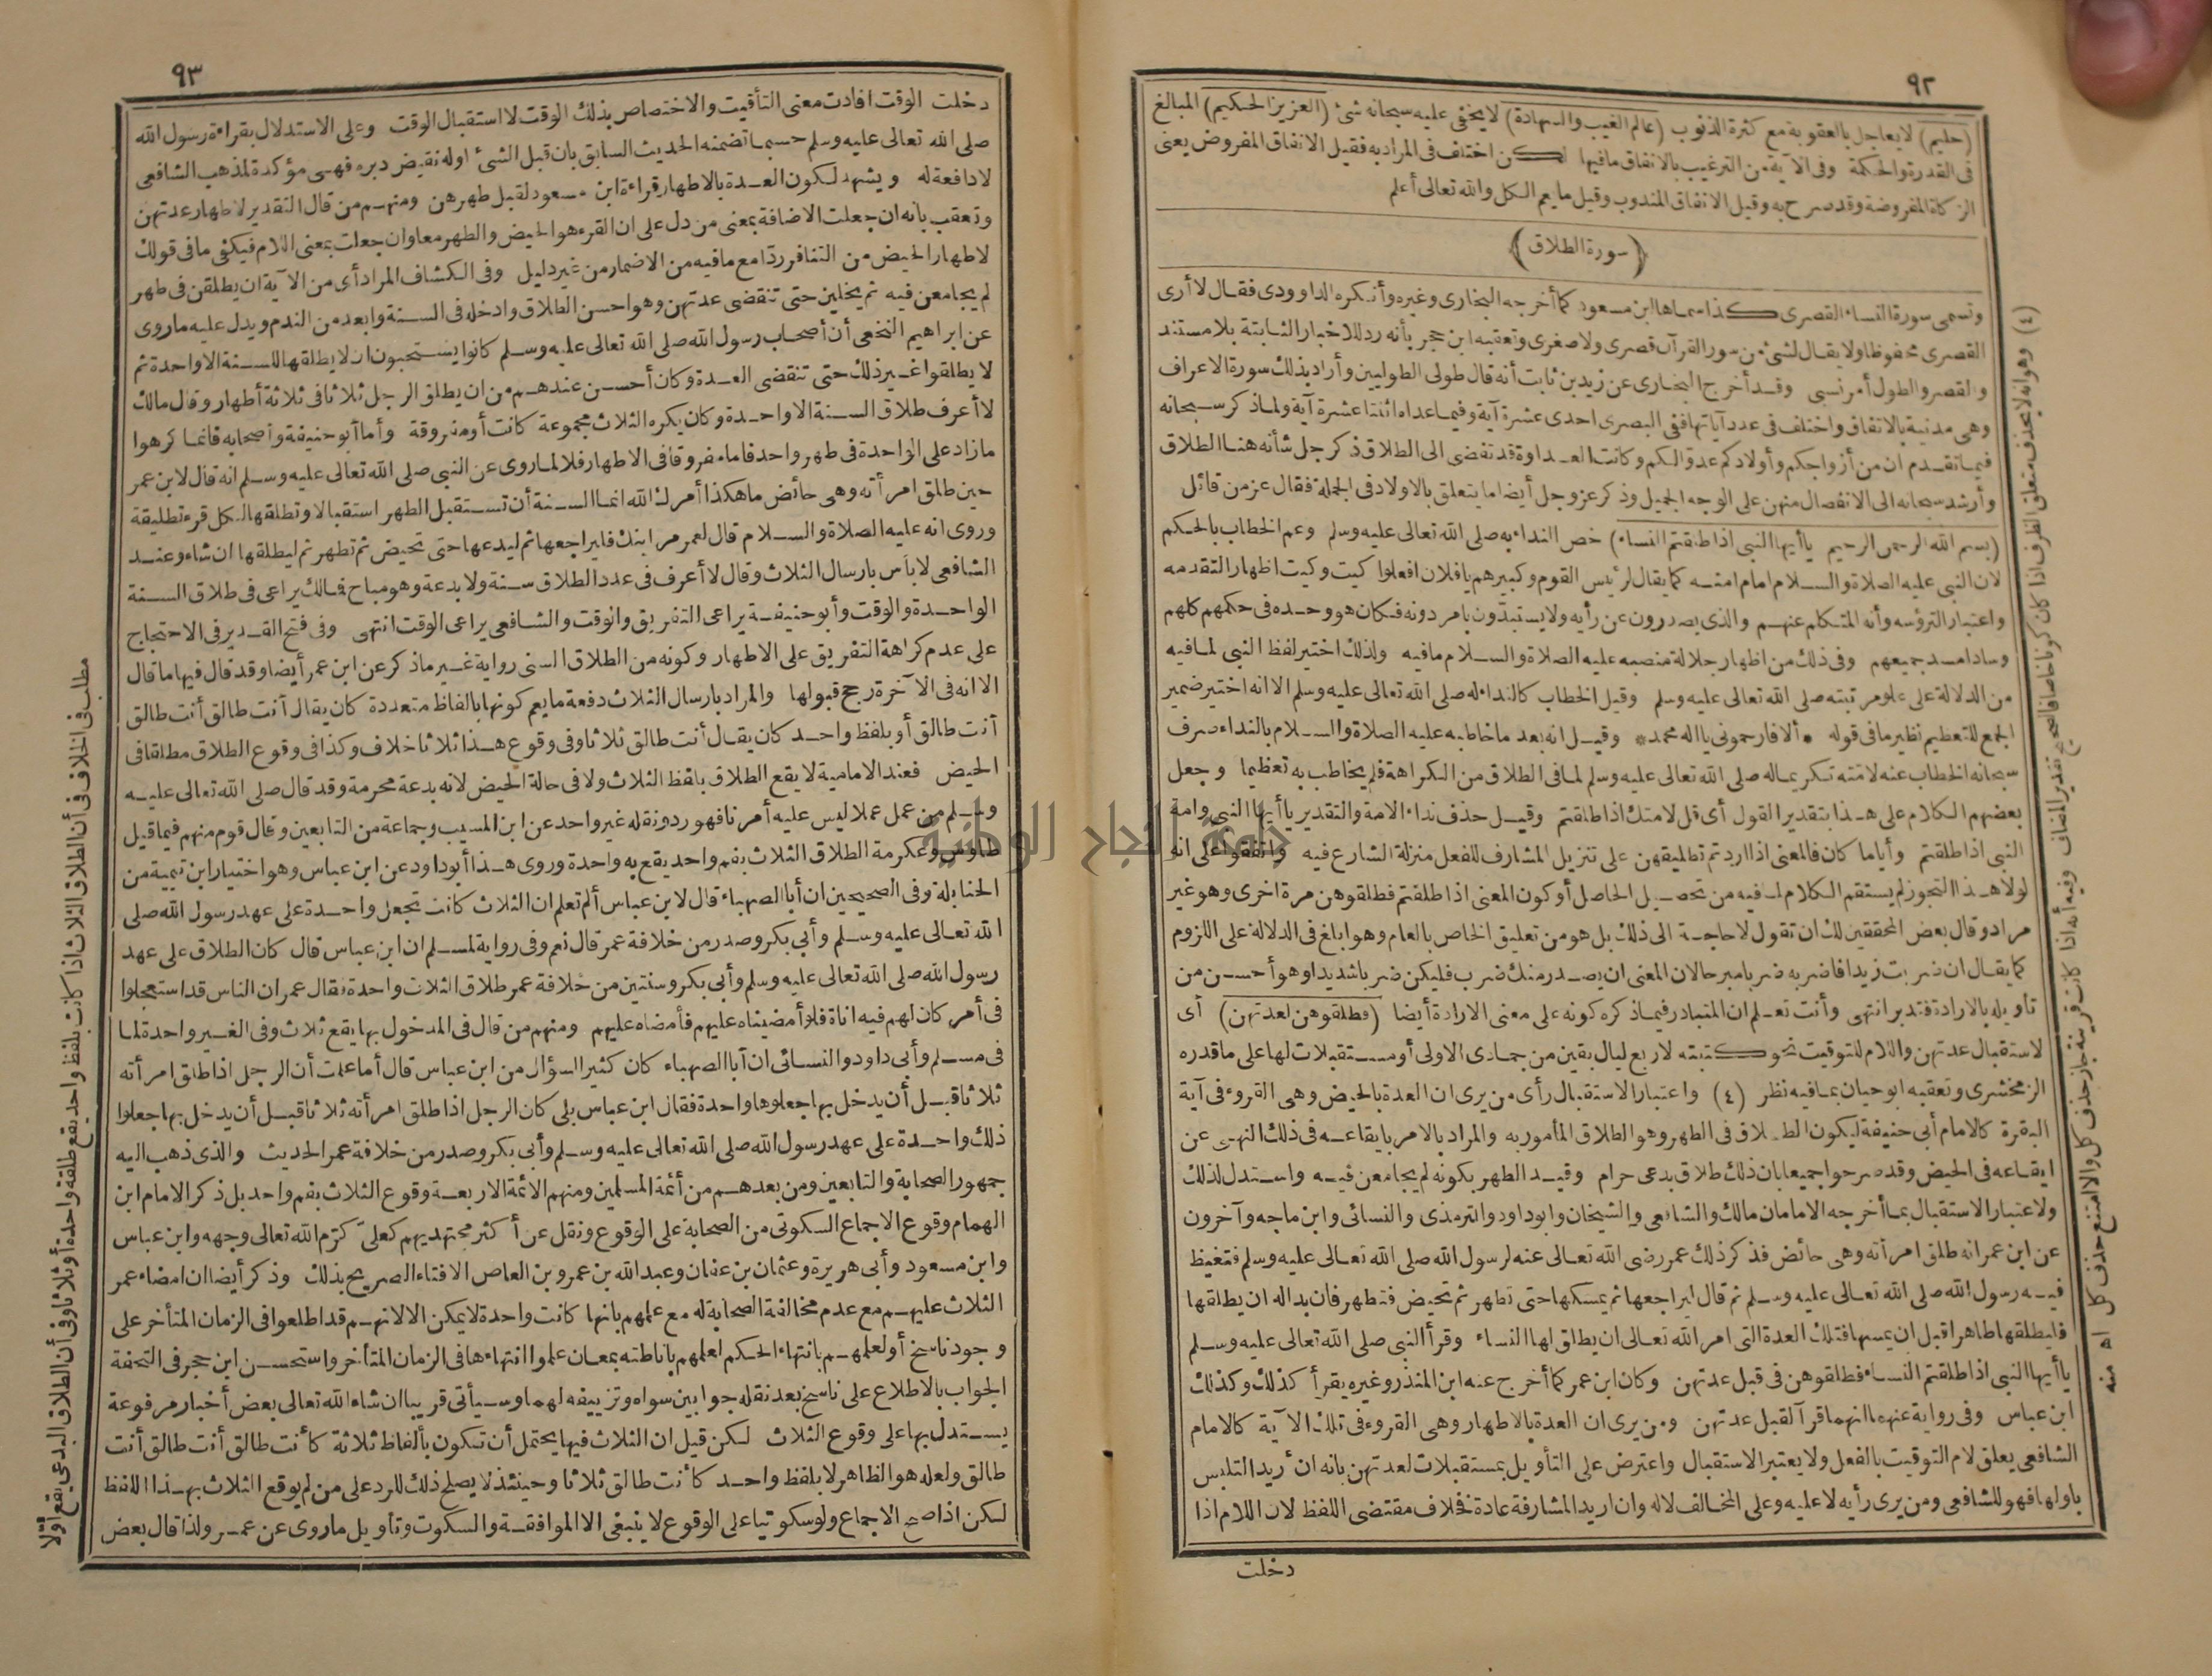 ٩٢
(حليم) لا يعاجل بالعقوبة مع كثرة الذنوب (عالم الغيب والشهادة) لا يخفى عليه سبحانه شئ (العزيز الحكيم) المبالغ
فى القدرة والحكمة وفى الآية من الترغيب بالانفاق مافيها لكن اختلف فى المراد به فقيل الانفاق المفروض يعنى
الزكاة المفروضة وقد صرح به وقيل الانفاق المندوب وقيل ما يعم الكل والله تعالى أعلم
﴿سورة الطلاق﴾
وتسمى سورة النساء القصرى كذا سماها ابن مسعود كما أخرجه البخارى وغيره وأنكره الداوودى فقال لا أرى
القصرى محفوظا ولا يقال لشئ من سور القرآن قصرى ولا صغرى وتعقبه ابن حجر بأنه رد للاخبار الثابتة بلا مستند
والقصر والطول أمر نسبى وقد أخرج البخارى عن زيد بن ثابت أنه قال طولى الطوليين وأراد بذلك سورة الاعراف
وهى مدنية بالاتفاق واختلف فى عدد آياتها ففى البصرى احدى عشرة آية وفيما عداه اثنتا عشرة آية ولما ذكر سبحانه
فيما تقدم ان من أزواجكم وأولادكم عدوا لكم وكانت العداوة قد تفضى الى الطلاق ذكر جل شأنه هنا الطلاق
وأرشد سبحانه الى الانفصال منهن على الوجه الجميل وذكر عز وجل أيضا ما يتعلق بالاولاد فى الجملة فقال عز من قائل
(بسم الله الرحمن الرحيم ياأيها النبى اذا طلقتم النساء) خص النداء به صلى الله تعالى عليه وسلم وعم الخطاب بالحكم
لان النبى عليه الصلاة والسلام امام امته كما يقال لرئيس القوم وكبيرهم يافلان افعلوا كيت وكيت اظهارا لتقدمه
واعتبارا لترؤسه وأنه المتكلم عنهم والذى يصدرون عن رأيه ولا يستبدون بامر دونه فكان هو وحده فى حكمهم كلهم
وسادا مسد جميعهم وفى ذلك من اظهار جلالة منصبه عليه الصلاة والسلام مافيه ولذلك اختير لفظ النبى لما فيه
من الدلالة على علو مرتبته صلى الله تعالى عليه وسلم وقيل الخطاب كالنداء له صلى الله تعالى عليه وسلم الا انه اختير ضمير
الجمع للتعظيم نظير مافى قوله * ألا فارحمونى يااله محمد* وقيل انه بعد ما خاطبه عليه الصلاة والسلام بالنداء صرف
سبحانه الخطاب عنه لامته تكريما له صلى الله تعالى عليه وسلم لما فى الطلاق من الكراهة فلم يخاطب به تعظيما وجعل
بعضهم الكلام على هذا بتقدير القول أى قل لامتك اذا طلقتم وقيل حذف نداء الامة والتقدير ياأيها النبى وامة
النبى اذا طلقتم وأياما كان فالمعنى اذا اردتم تطليقهن على تنزيل المشارف للفعل منزلة الشارع فيه واتفقوا على انه
لولا هذا التجوز لم يستقم الكلام لما فيه من تحصيل الحاصل أو كون المعنى اذا طلقتم فطلقوهن مرة اخرى وهو غير
مراد وقال بعض المحققين لك ان تقول لا حاجة الى ذلك بل هو من تعليق الخاص بالعام وهو ابلغ فى الدلالة على اللزوم
كما يقال ان ضربت زيدا فاضربه ضربا مبرحا لان المعنى ان يصدر منك ضرب فليكن ضربا شديدا وهو أحسن من
تأويله بالارادة فتدبر انتهى وأنت تعلم ان المتبادر فيما ذكره كونه على معنى الارادة أيضا (فطلقوهن لعدتهن) أى
لاستقبال عدتهن واللام للتوقيت نحو كتبته لاربع ليال بقين من جمادى الاولى أو مستقبلات لها على ما قدره
الزمخشرى وتعقبه ابو حيان بما فيه نظر (٤) واعتبار الاستقبال رأى من يرى ان العدة بالحيض وهى القروء فى آية
البقرة كالامام أبى حنيفة ليكون الطلاق فى الطهر وهو الطلاق المأمور به والمراد بالامر بايقاعه فى ذلك النهى عن
ايقاعه فى الحيض وقد صرحوا جميعا بان ذلك طلاق بدعى حرام وقيد الطهر بكونه لم يجامعن فيه واستدل لذلك
ولاعتبار الاستقبال بما أخرجه الامامان مالك والشافعى والشيخان وابو داود والترمذى والنسائى وابن ماجه وآخرون
عن ابن عمر انه طلق امرأته وهى حائض فذكر ذلك عمر رضى الله تعالى عنه لرسول الله صلى الله تعالى عليه وسلم فتغيظ
فيه رسول الله صلى الله تعالى عليه وسلم ثم قال ليراجعها ثم يمسكها حتى تطهر ثم تحيض فتطهر فان بدا له ان يطلقها
فليطلقها طاهرا قبل ان يمسها فتلك العدة التى امر الله تعالى ان يطلق لها النساء وقرأ النبى صلى الله تعالى عليه وسلم
ياأيها النبى اذا طلقتم النساء فطلقوهن فى قبل عدتهن وكان ابن عمر كما أخرج عنه ابن المنذر وغيره يقرأ كذلك وكذلك
ابن عباس وفى رواية عنهما انهما قرآ لقبل عدتهن ومن يرى ان العدة بالاطهار وهى القروء فى تلك الآية كالامام
الشافعى يعلق لام التوقيت بالفعل ولا يعتبر الاستقبال واعترض على التأويل بمستقبلات لعدتهن بانه ان أريد التلبس
باولها فهو للشافعى ومن يرى رأيه لا عليه وعلى المخالف لا له وان اريد المشارفة عادة فخلاف مقتضى اللفظ لان اللام اذا
دخلت
(٤) وهو انه لا يحذف متعلق الظرف اذا كان كونا خاصا فالصحيح تقدير المضاف وفيه أنه اذا كانت قرينة جاز حذف كل والا امتنع حذف كل اه منه
٩٣
دخلت الوقت افادت معنى التأقيت والاختصاص بذلك الوقت لا استقبال الوقت وعلى الاستدلال بقراءة رسول الله
صلى الله تعالى عليه وسلم حسبما تضمنه الحديث السابق بان قبل الشئ اوله نقيض دبره فهى مؤكدة لمذهب الشافعى
لا دافعة له ويشهد لكون العدة بالاطهار قراءة ابن مسعود لقبل طهرهن ومنهم من قال التقدير لاطهار عدتهن
وتعقب بأنه ان جعلت الاضافة بمعنى من دل على ان القرء هو الحيض والطهر معا وان جعلت بمعنى اللام فيكفى مافى قولك
لاطهار الحيض من التنافر ردّا مع مافيه من الاضمار من غير دليل وفى الكشاف المراد أى من الآية ان يطلقن فى طهر
لم يجامعن فيه ثم يخلين حتى تنقضى عدتهن وهو احسن الطلاق وادخله فى السنة وابعد من الندم ويدل عليه ماروى
عن ابراهيم النخعى أن أصحاب رسول الله صلى الله تعالى عليه وسلم كانوا يستحبون ان لا يطلقها للسنة الا واحدة ثم
لا يطلقوا غير ذلك حتى تنقضى العدة وكان أحسن عندهم من ان يطلق الرجل ثلاثا فى ثلاثة أطهار وقال مالك
لا أعرف طلاق السنة الا واحدة وكان يكره الثلاث مجموعة كانت أو متفرقة وأما أبو حنيفة وأصحابه فانما كرهوا
مازاد على الواحدة فى طهر واحد فاما مفرقا فى الاطهار فلا لما روى عن النبى صلى الله تعالى عليه وسلم انه قال لابن عمر
حين طلق امرأته وهى حائض ما هكذا أمرك الله انما السنة أن تستقبل الطهر استقبالا وتطلقها لكل قرء تطليقة
وروى انه عليه الصلاة والسلام قال لعمر مر ابنك فليراجعها ثم ليدعها حتى تحيض ثم تطهر ثم ليطلقها ان شاء وعند
الشافعى لا بأس بارسال الثلاث وقال لا أعرف فى عدد الطلاق سنة ولا بدعة وهو مباح فمالك يراعى فى طلاق السنة
الواحدة والوقت وأبو حنيفة يراعى التفريق والوقت والشافعى يراعى الوقت انتهى وفى فتح القدير فى الاحتجاج
على عدم كراهة التفريق على الاطهار وكونه من الطلاق السنى رواية غير ماذكر عن ابن عمر أيضا وقد قال فيها ما قال
الا انه فى الآخرة رجح قبولها والمراد بارسال الثلاث دفعة ما يعم كونها بالفاظ متعددة كان يقال أنت طالق أنت طالق
أنت طالق أو بلفظ واحد كان يقال أنت طالق ثلاثا وفى وقوع هذا ثلاثا خلاف وكذا فى وقوع الطلاق مطلقا فى
الحيض فعند الامامية لا يقع الطلاق بلفظ الثلاث ولا فى حالة الحيض لانه بدعة محرمة وقد قال صلى الله تعالى عليه
وسلم من عمل عملا ليس عليه أمرنا فهو رد ونقله غير واحد عن ابن المسيب وجماعة من التابعين وقال قوم منهم فيما قيل
طاوس وعكرمة الطلاق الثلاث بفم واحد يقع به واحدة وروى هذا أبو داود عن ابن عباس وهو اختيار ابن تيمية من
الحنابلة وفى الصحيحين ان أبا الصهباء قال لابن عباس ألم تعلم ان الثلاث كانت تجعل واحدة على عهد رسول الله صلى
الله تعالى عليه وسلم وأبى بكر وصدر من خلافة عمر قال نعم وفى رواية لمسلم ان ابن عباس قال كان الطلاق على عهد
رسول الله صلى الله تعالى عليه وسلم وأبى بكر وسنتين من خلافة عمر طلاق الثلاث واحدة فقال عمر ان الناس قد استعجلوا
فى أمر كان لهم فيه اناة فلو أمضيناه عليهم فأمضاه عليهم ومنهم من قال فى المدخول بها يقع ثلاث وفى الغير واحدة لما
فى مسلم وأبى داود والنسائى ان أبا الصهباء كان كثير السؤال من ابن عباس قال أما علمت أن الرجل اذا طلق امرأته
ثلاثا قبل أن يدخل بها جعلوها واحدة فقال ابن عباس بلى كان الرجل اذا طلق امرأته ثلاثا قبل أن يدخل بها جعلوا
ذلك واحدة على عهد رسول الله صلى الله تعالى عليه وسلم وأبى بكر وصدر من خلافة عمر الحديث والذى ذهب اليه
جمهور الصحابة والتابعين ومن بعدهم من أئمة المسلمين ومنهم الائمة الاربعة وقوع الثلاث بفم واحد بل ذكر الامام ابن
الهمام وقوع الاجماع السكوتى من الصحابة على الوقوع ونقل عن أكثر مجتهديهم كعلىّ كرّم الله تعالى وجهه وابن عباس
وابن مسعود وأبى هريرة وعثمان بن عفان وعبد الله بن عمرو بن العاص الافتاء الصريح بذلك وذكر أيضا ان امضاء عمر
الثلاث عليهم مع عدم مخالفة الصحابة له مع علمهم بانها كانت واحدة لا يمكن الا لانهم قد اطلعوا فى الزمان المتأخر على
وجود ناسخ أو لعلمهم بانتهاء الحكم لعلمهم باناطته بمعان علموا انتهاءها فى الزمان المتأخر واستحسن ابن حجر فى التحفة
الجواب بالاطلاع على ناسخ بعد نقله جوابين سواه وتزييفه لهما وسيأتى قريبا ان شاء الله تعالى بعض أخبار مرفوعة
يستدل بها على وقوع الثلاث لكن قيل ان الثلاث فيها يحتمل أن تكون بألفاظ ثلاثة كأنت طالق أنت طالق أنت
طالق ولعله هو الظاهر لا بلفظ واحد كأنت طالق ثلاثا وحينئذ لا يصلح ذلك للرد على من لم يوقع الثلاث بهذا اللفظ
لكن اذا صح الاجماع ولو سكوتيا على الوقوع لا ينبغى الا الموافقة والسكوت وتأويل ماروى عن عمر ولذا قال بعض
مطلب فى الخلاف فى أن الطلاق الثلاث اذا كانت بلفظ واحد يقع طلقة واحدة أو ثلاثا وفى أن الطلاق البدعى يقع أولا
جامعة النجاح الوطنية